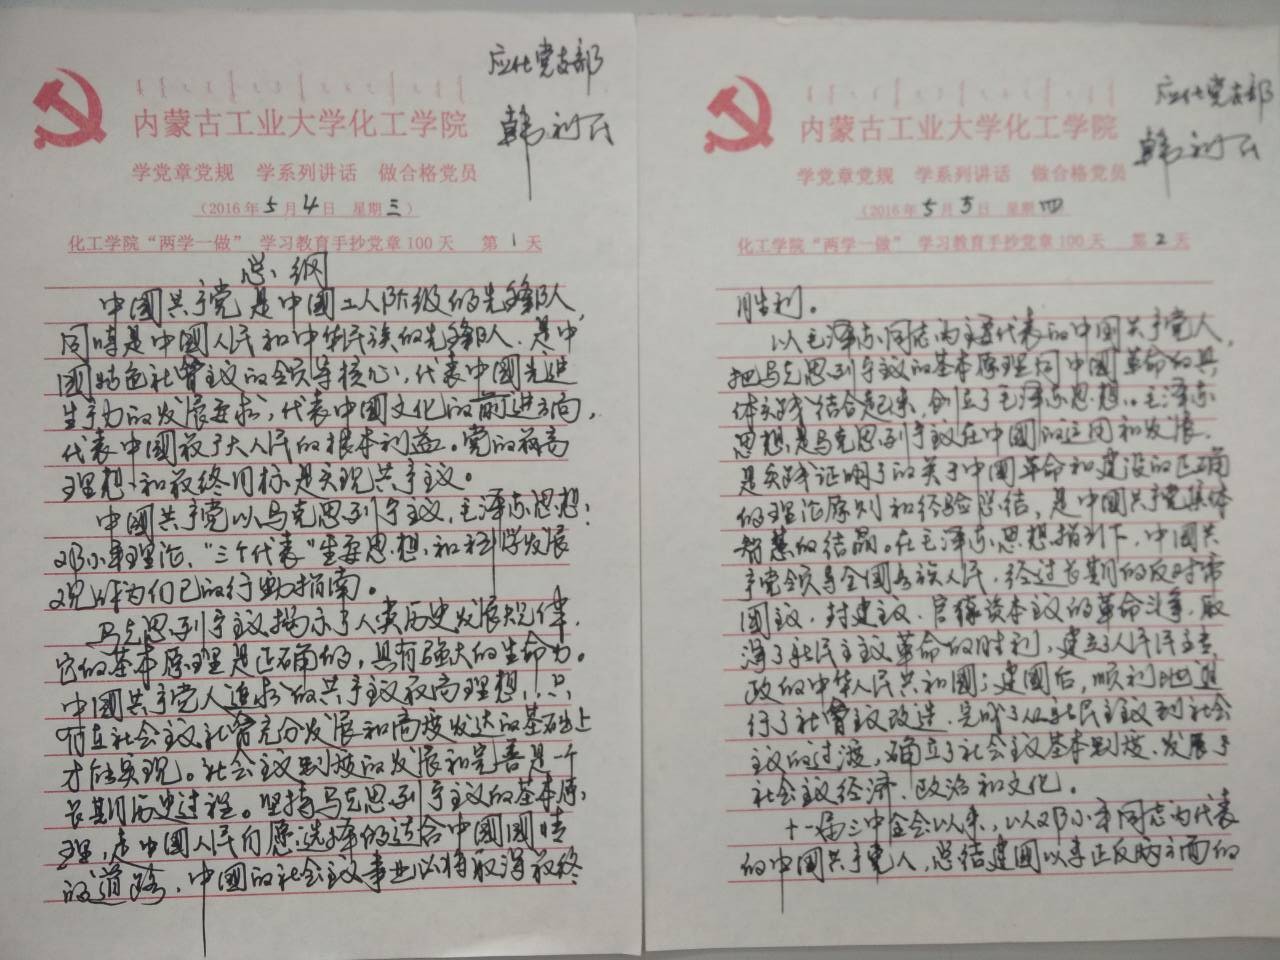 应化党支部
韩利民
内蒙古工业大学化工学院
学党章党规 学系列讲话 做合格党员
（2016年5月4日 星期三）
化工学院“两学一做”学习教育手抄党章100天 第1天
总纲
中國共产党是中國工人阶级的先锋队，
同時是中國人民和中华民族的先锋队，是中
國特色社會主义的领导核心，代表中国先进
生产力的发展要求，代表中国文化的前进方向，
代表中国最广大人民的根本利益。党的最高
理想和最终目标是实现共产主义。
中國共产党以马克思列宁主义、毛泽东思想、
邓小平理论、“三个代表”重要思想和科学发展
观作为自己的行動指南。
马克思列宁主义揭示了人类历史发展规律，
它的基本原理是正确的，具有强大的生命力。
中國共产党人追求的共产主义最高理想，只
有在社会主义社會充分发展和高度发达的基础上
才能实现。社会主义制度的发展和完善是一个
长期历史过程。坚持马克思列宁主义的基本原
理，走中國人民自愿选择的适合中國國情
的道路，中國的社会主义事业必将取得最终
应化党支部
韩利民
内蒙古工业大学化工学院
学党章党规 学系列讲话 做合格党员
（2016年5月5日 星期四
化工学院“两学一做”学习教育手抄党章100天 第2天
胜利。
以毛泽东同志为主要代表的中国共产党人，
把马克思列宁主义的基本原理同中國革命的具
体实践结合起来，创立了毛泽东思想。毛泽东
思想是马克思列宁主义在中國的运用和发展，
是实践证明了的关于中國革命和建设的正确
的理论原则和经验总结，是中國共产党集体
智慧的结晶。在毛泽东思想指引下，中國共
产党领导全国各族人民，经过长期的反对帝
国主义、封建主义、官僚资本主义的革命斗争，取
得了新民主主义革命的胜利，建立了人民民主专
政的中华人民共和國；建國后，顺利地进
行了社會主义改造，完成了从新民主主义到社会
主义的过渡，确立了社会主义基本制度，发展了
社会主义经济、政治和文化。
十一届三中全会以来，以邓小平同志为代表
的中國共产党人，总结建國以来正反两方面的